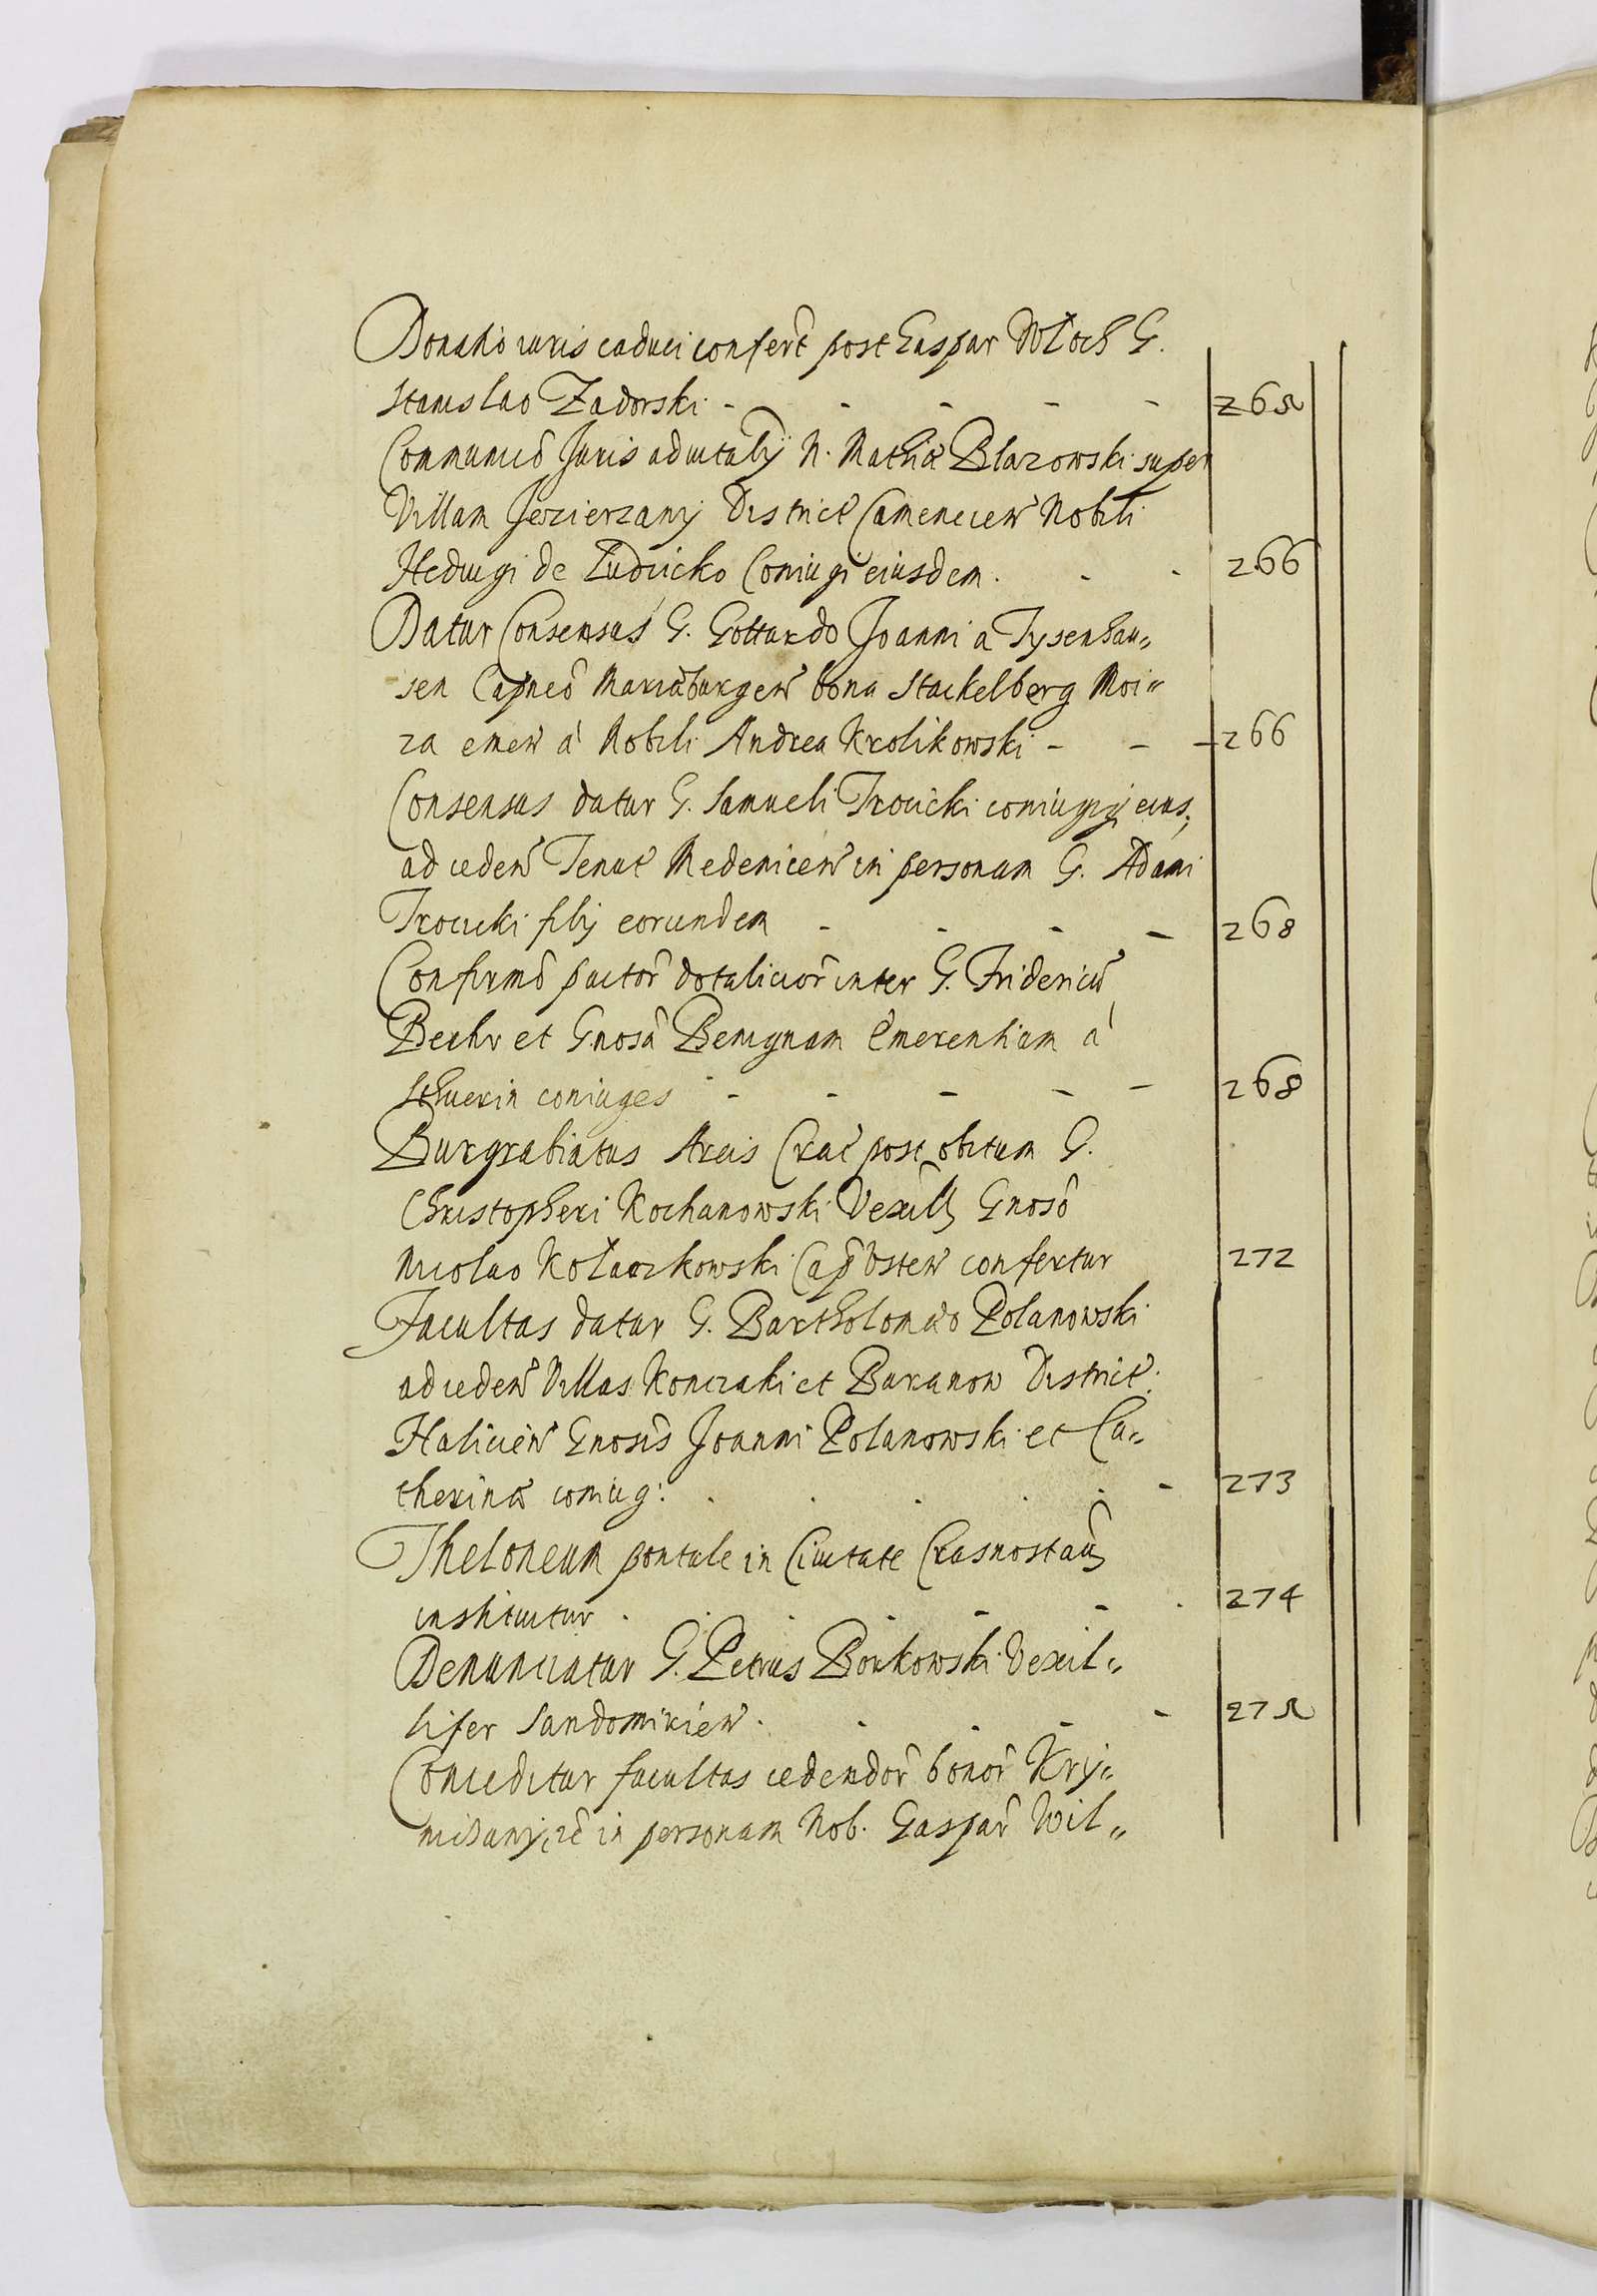 Donatio iuris caduci confert post Gaspar Włoch G.
Stanislao Zadorski - - - - - 265
Communicõ Juris aduitalij N. Mathiæ Blazowski super
Villam Jezierzany District Camenecen Nobili
Hedwigi de Ludzicko Coniugi eiusdem. - - 266
Datur Consensus G. Gottardo Joanni a Tysenhau„
sen Capneo Mariæburgen bona Stackelberg Moi„
za emen a Nobili Andrea Krolikowski - - - 266
Consensus datur G. Samueli Trocicki coniugiq eius,
ad ceden Tenut Medenicen in personam G. Adami
Trocicki filij eorundem - - - - 268
Confirmõ pactor dotalicior inter G. Fridericu
Bechr et Gnosa Benignam Emerentiam a
Schuerin coniuges - - - - - 268
Burgrabiatus Arcis Crac post obitum G.
Christopheri Kochanowski Vexill Gnoso
Nicolao Kołaczkowski Cap Osten confertur 272
Facultas datur G. Bartholomæo Polanowski
ad ceden Villas Konczaki et Baranow District:
Halicien Gnosis Joanni Polanowski et Ca„
therinæ coniug: . . . . . - 273
Theloneum pontale in Ciuitate Crasnostau
instituitur . . . . - - . 274
Denunciatur G. Petrus Borkowski Vexil„
lifer Sandomirien. - - - - 275
Conceditur facultas cedendor bonor Kry„
in personam Nob. Gaspar Wil„